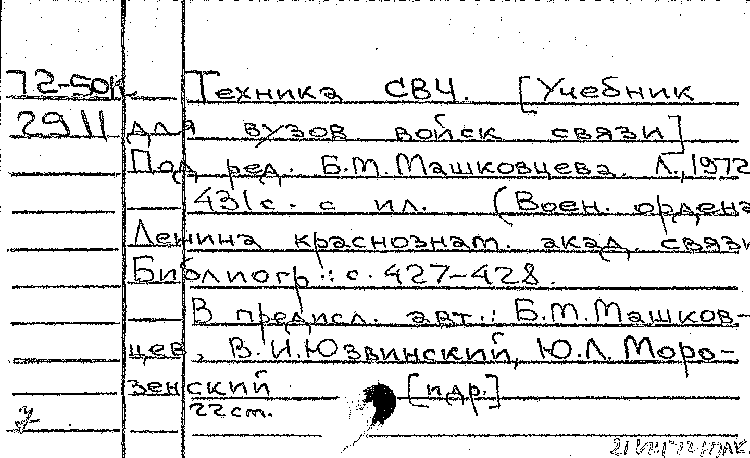 72-50к Техника СВЧ. [Учебник
2911 для вузов войск связи]
Под ред. Б.М.Машковцева. Л.,1972
431с. с ил. (Воен. ордена
Ленина краснознам. акад. связи
Библиогр.: с. 427-428.
В предисл. авт.: Б.М.Машков-
цев, В.И.Юзвинский, Ю.Л. Моро-
зенский [и др.]
22 ст.
У